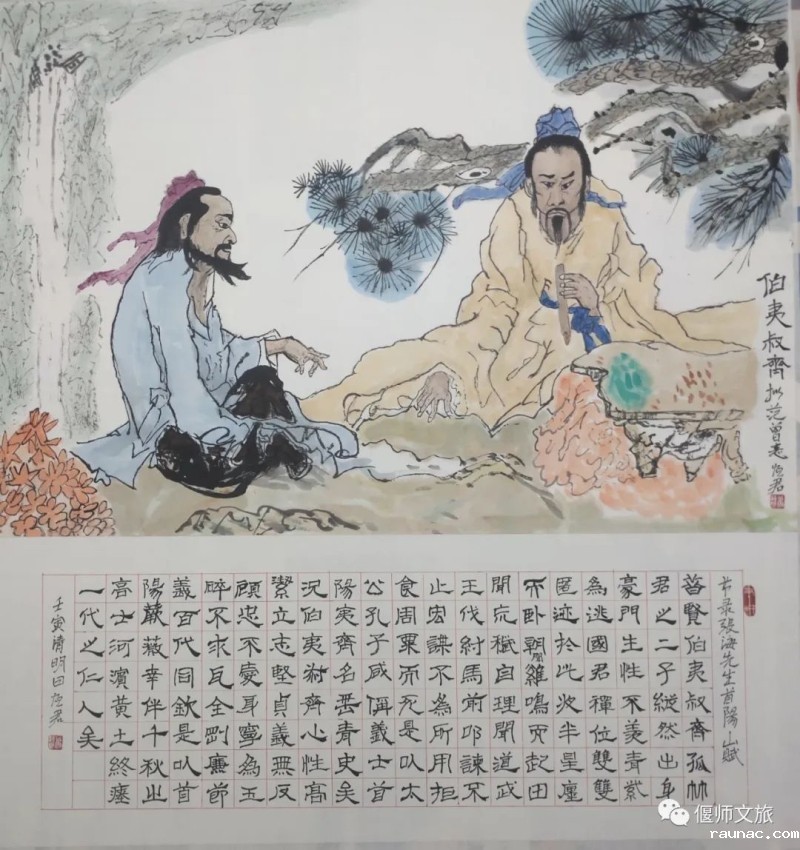 伯夷叔齊
拟范曾
节录張海先生首陽山赋
昔賢伯夷叔齊孤竹
君之二子縱然出身
豪門生性不羨青紫
為逃國君禪位雙雙
匿迹於此披半星塵
而卧朝闻雞鳴而起田
聞穢自理聞道武
王伐紂馬前叩諫不
止宏謀不為所用拒
食周粟而死是以太
公孔子咸偁義士首
陽夷齊名垂青史矣
况伯夷叔齊心性高
絜立志堅貞義無反
顧忠不變耳寧為玉
碎不求瓦全廉節
義百代同欽是以首
陽蕨薇幸伴千秋之
高士河濱黄土終瘞
一代之仁人矣
壬寅清明日君
偃师文旅
raunac.com